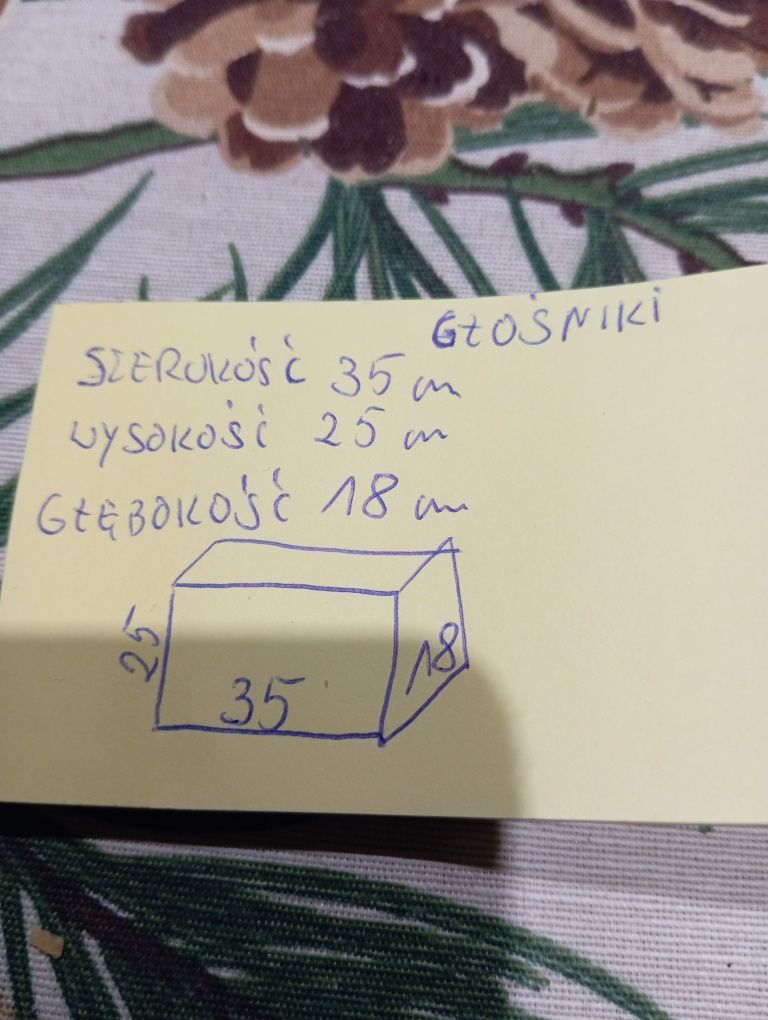 GŁOŚNIKI
SZEROKOŚĆ 35 cm
WYSOKOŚĆ 25 cm
GŁĘBOKOŚĆ 18 cm
25
35
18